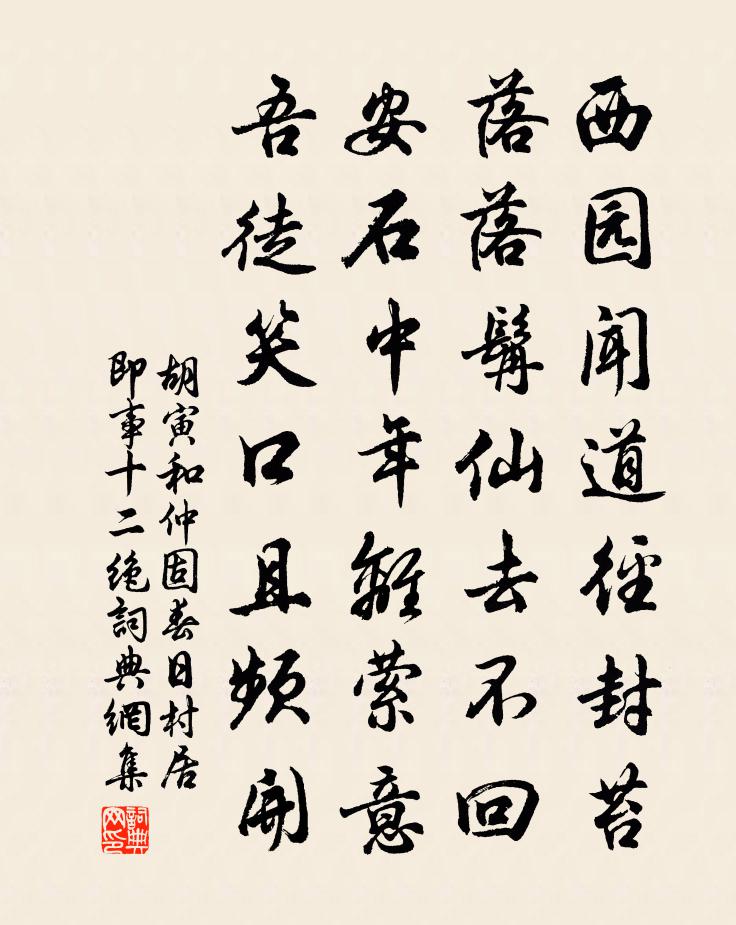 西园闻道径封苔
落落髯仙去不回
安石中年離萦意
吾徒笑口且频開
胡寅和仲固春日村居
即事十二绝詞典網集
詞典
网印